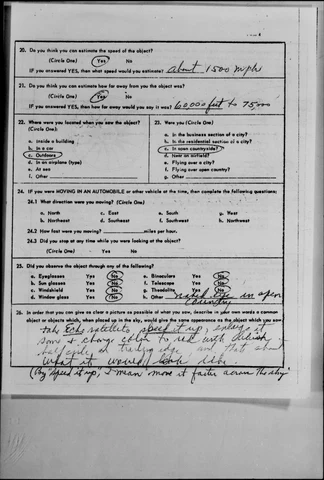 20. Do you think you can estimate the speed of the object?
(Circle One) Yes No
IF you answered YES, then what speed would you estimate? about 1500 mph
21. Do you think you can estimate how far away from you the object was?
(Circle One) Yes No
IF you answered YES, then how far away would you say it was? 60000 feet to 75000
22. Where were you located when you saw the object?
(Circle One):
a. Inside a building
b. In a car
c. Outdoors
d. In an airplane (type)
e. At sea
f. Other
23. Were you (Circle One)
a. In the business section of a city?
b. In the residential section of a city?
c. In open countryside?
d. Near an airfield?
e. Flying over a city?
f. Flying over open country?
g. Other
24. IF you were MOVING IN AN AUTOMOBILE or other vehicle at the time, then complete the following questions:
24.1 What direction were you moving? (Circle One)
a. North c. East e. South g. West
b. Northeast d. Southeast f. Southwest h. Northwest
24.2 How fast were you moving? miles per hour.
24.3 Did you stop at any time while you were looking at the object?
(Circle One) Yes No
25. Did you observe the object through any of the following?
a. Eyeglasses Yes No e. Binoculars Yes No
b. Sun glasses Yes No f. Telescope Yes No
c. Windshield Yes No g. Theodolite Yes No
d. Window glass Yes No h. Other naked eye in open
country
26. In order that you can give as clear a picture as possible of what you saw, describe in your own words a common
object or objects which, when placed up in the sky, would give the same appearance as the object which you saw.
take Echo satellite speed it up, enlarge it
some & change color to red with
half circle on trailing edge and that's about
what it would look like.
(By "speed it up" I mean "move it faster across the sky"